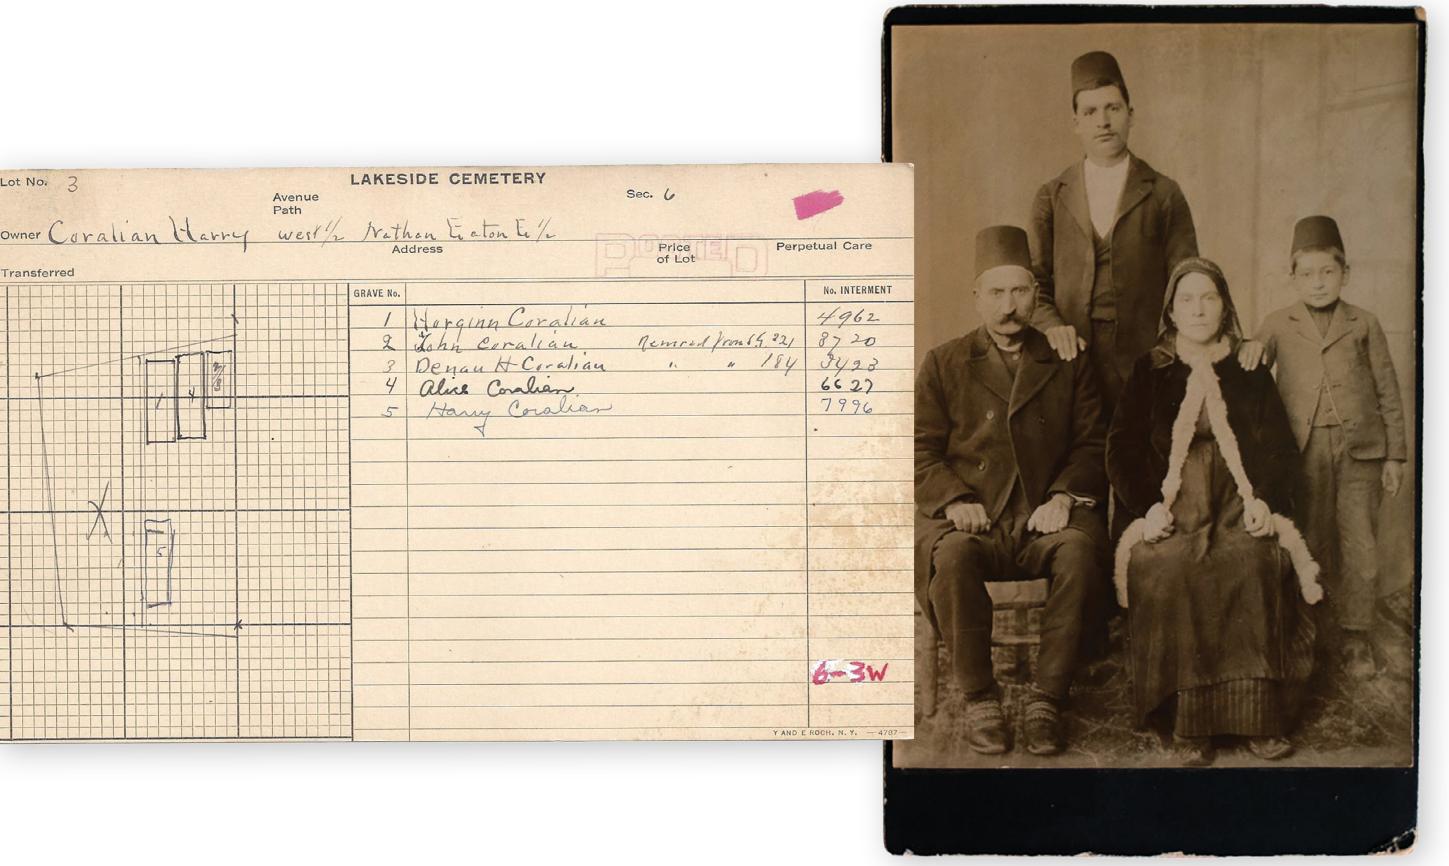 Lot No. 3
LAKESIDE CEMETERY
Sec. 6
Avenue
Path
Owner Coralian Harry west 1/2 Nathan Eaton E 1/2
Address
Price
of Lot
Perpetual Care
POSTED
Transferred
GRAVE No. No. INTERMENT
1 Coralian 4962
2 John Coralian Removed from 221 8720
3 H Coralian " " 184 3423
4 Alice Coralian 6627
5 Harry Coralian 7996
1 4
5
6-3W
Y AND E ROCH, N. Y. —4787—